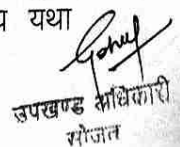 यथा
उपखण्ड अधिकारी
सोजत